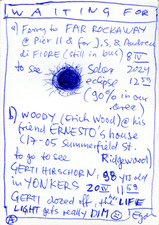 WAITING FOR
a) Ferry to FAR ROCKAWAY
@ Pier 11 & for J.S. & Andrea
di FIORE (still in bus)
8 IV
to see Solar 2024
eclipse 1259
(90% in our
area)
b) WOODY (Erich Wood) @ his
friend ERNESTO's house
(17-05 Summerfield St.
to go to see Ridgewood)
GERTI HIRSCHORN, 98 yrs old
in YONKERS 20 IV 1159
GERTI dozed off, the LIFE
LIGHT gets really DIM